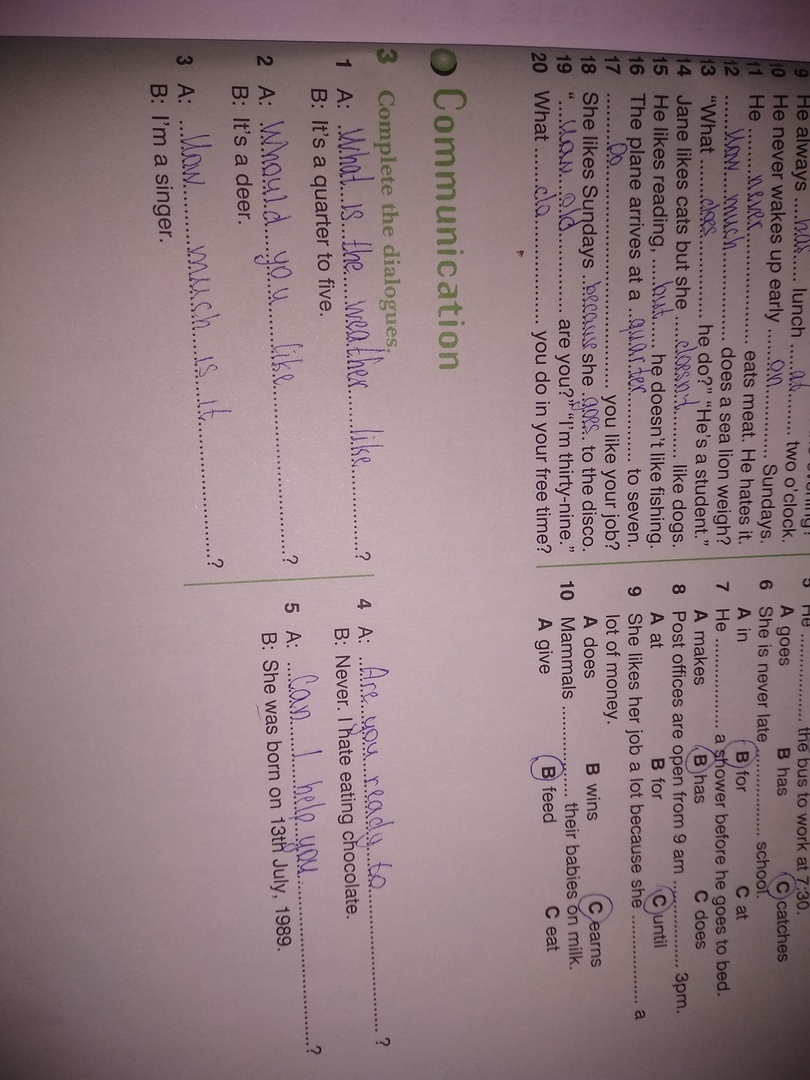 9 He always ....has..... lunch .....at......... two o'clock.
10 He never wakes up early .......on............ Sundays.
11 He .........never................... eats meat. He hates it.
12 .......how....much.................. does a sea lion weigh?
13 "What .......does.................. he do?" "He's a student."
14 Jane likes cats but she ....doesn't......... like dogs.
15 He likes reading, ....but..... he doesn't like fishing.
16 The plane arrives at a ..quarter............. to seven.
17 ..........Do............................................ you like your job?
18 She likes Sundays ..because she .goes.. to the disco.
19 "....how....old................ are you?" "I'm thirty-nine."
20 What .......do..................... you do in your free time?
Communication
3 Complete the dialogues.
1 A: ..What...is...the....weather.....like................?
B: It's a quarter to five.
2 A: .Whould...you.....like..............................?
B: It's a deer.
3 A: ....How..........much...is...it.........................?
B: I'm a singer.
5 He ................. the bus to work at 7:30.
A goes B has C catches
6 She is never late ................. school.
A in B for C at
7 He ................. a shower before he goes to bed.
A makes B has C does
8 Post offices are open from 9 am ................. 3pm.
A at B for C until
9 She likes her job a lot because she ................. a
lot of money.
A does B wins C earns
10 Mammals ................. their babies on milk.
A give B feed C eat
4 A: ..Are..you..ready..to.........................?
B: Never. I hate eating chocolate.
5 A: ....Can.....I...help..you...........................?
B: She was born on 13th July, 1989.